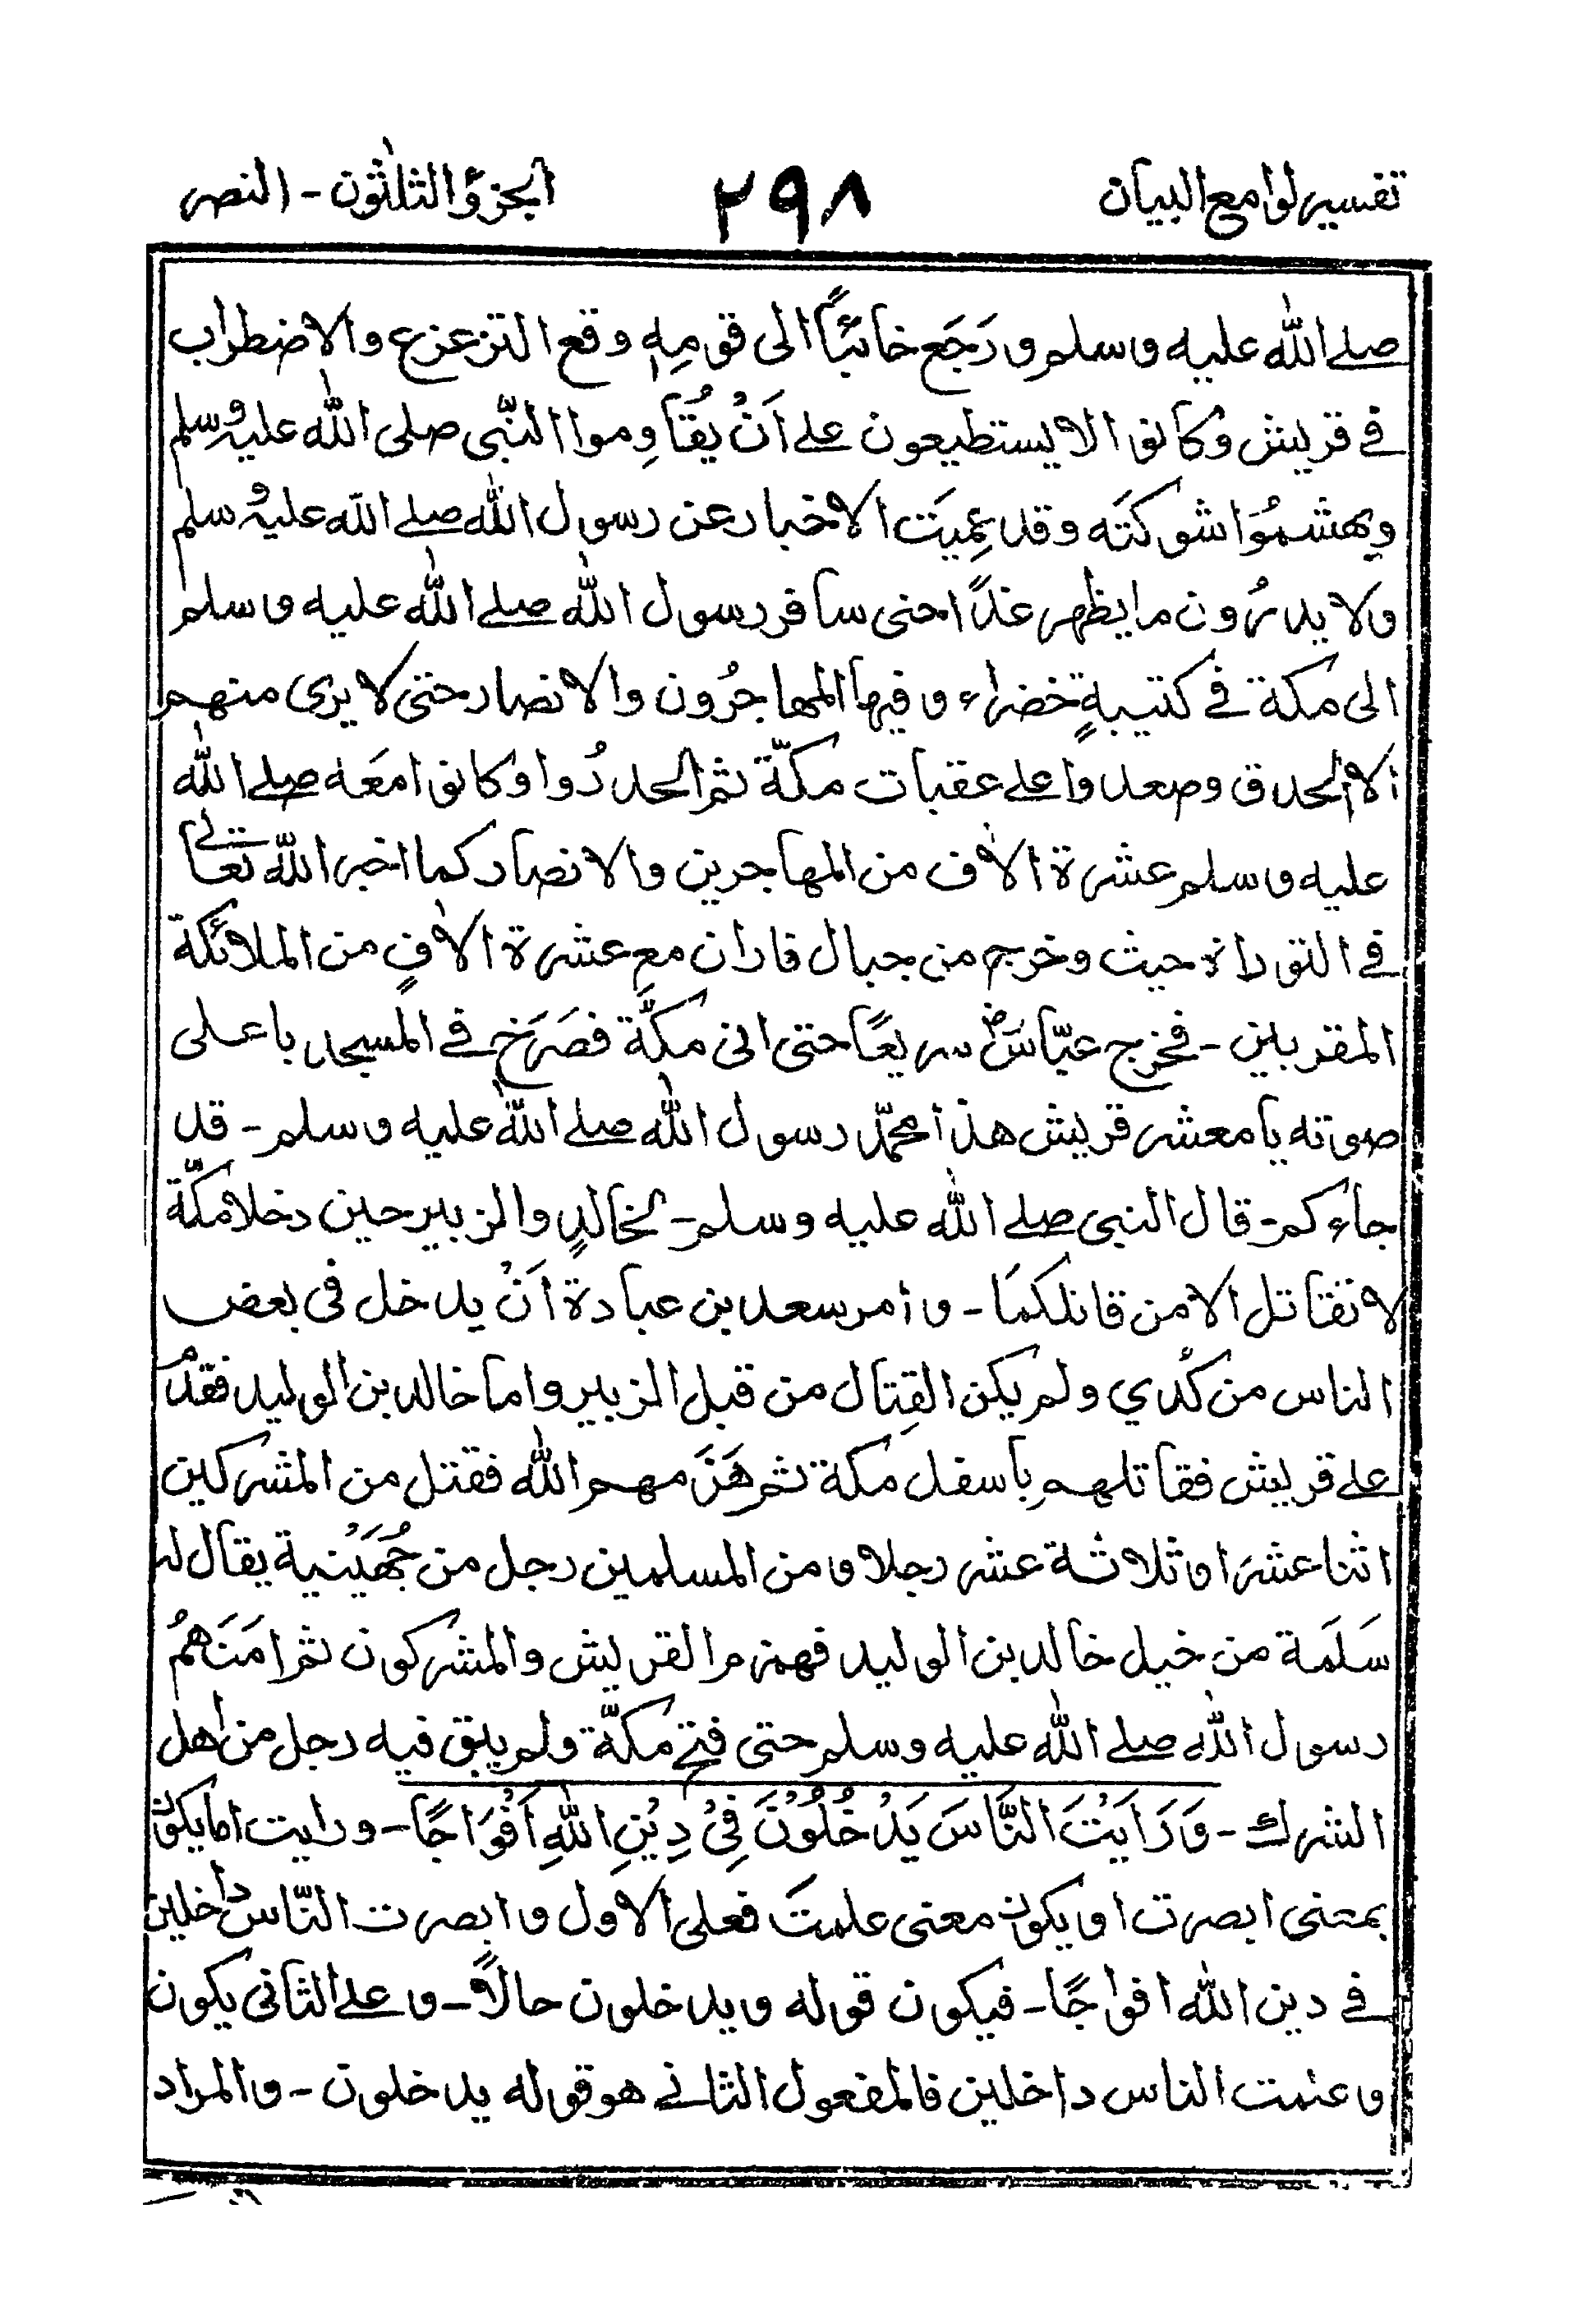 تفسير لوامع البيان ٢٩٨ الجزؤ الثلٰثون - النصر
صلے الله عليه وسلم ورَجَع خائبًا الى قومِهٖ وقع التزعزع والاضطراب
فے قريش وكانوا لا يستطيعون علے اَنْ يُقاوِموا النّبى صلى الله عليه وسلم
ويهشموُا شوكتَه وقد عِميَت الاخبار عن رسول الله صلے الله عليه وسلم
ولا يدرُون ما يظهر غدًا حتى سافر رسول الله صلے الله عليه وسلم
الى مكة فے كتيبةٍ خضراء وفيها المهاجرُون والانصار حتى لا يرى منهم
الا الحدق وصعدوا علے عقبات مكّة ثم انحدرُوا وكانوا معَه صلے الله
عليه وسلم عشرة الاٰف من المهاجرين والانصار كما اخبر الله تعالے
فے التوراة حيث وخرج من جبال فاران مع عشرة الاٰفٍ من الملائكة
المقربين - فخرج عبّاسؓ سريعًا حتى اتى مكّة فصَرَخ فے المسجد باعلى
صوته يا معشر قريش هذا محمّد رسول الله صلے الله عليه وسلم - قد
جاءكم - قال النبى صلے الله عليه وسلم - لخالدٍ والزبير حين دخلا مكّة
لا تقاتل الا من قاتلكمَا - وامر سعد بن عبادة اَنْ يدخل فى بعض
الناس من كُدي ولم يكن القِتال من قبل الزبير واما خالد بن الوليد فقدم
علے قريش فقاتلهم باسفل مكة ثم هَزَمهم الله فقتل من المشركين
اثنا عشرَ او ثلاثة عشر رجلا ومن المسلمين رجل من جُهَيْنية يقال له
سَلَمة من خيل خالد بن الوليد فهزم القريش والمشركون ثم امَنَهمُ
رسول الله صلے الله عليه وسلم حتى فتح مكّة ولم يبق فيه رجل من اهل
الشرك - وَرَاَيْتَ النَّاسَ يَدْخُلُوْنَ فِيْ دِيْنِ اللهِ اَفْوَاجًا - ورايت اما يكون
بمعنى ابصرت او يكون معنى علمتَ فعلى الاول وابصرت النّاس داخلين
فے دين الله افواجًا - فيكون قوله ويدخلون حالاً - وعلے الثانى يكون
وعلمت الناس داخلين فالمفعول الثانے هو قوله يدخلون - والمراد